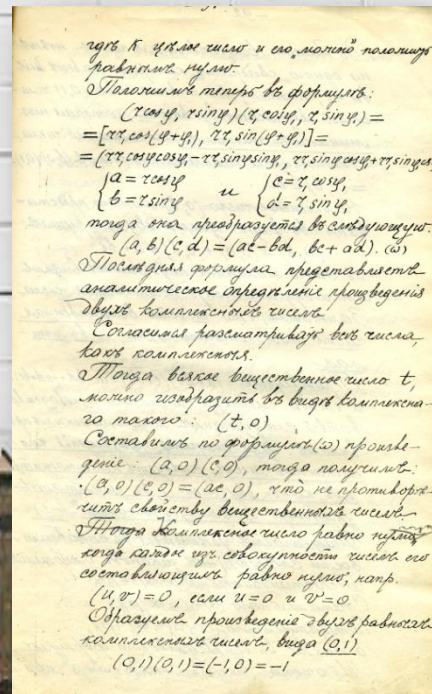 гдѣ K цѣлое число и его можно положить
равнымъ нулю.
Положимъ теперь въ формулѣ:
(rcosφ, rsinφ)(r₁cosφ₁, r₁sinφ₁)=
=[rr₁cos(φ+φ₁), rr₁sin(φ+φ₁)]=
=(rr₁cosφcosφ₁-rr₁sinφsinφ₁, rr₁sinφcosφ₁+rr₁sinφ₁cosφ
{a=rcosφ и {c=r₁cosφ₁
{b=rsinφ {d=r₁sinφ₁
тогда она преобразуется въ слѣдующую:
(a,b)(c,d)=(ac-bd, bc+ad). (ω)
Послѣдняя формула представляетъ
аналитическое опредѣленіе произведенія
двухъ комплексныхъ чиселъ
Согласимся разсматривать всѣ числа,
какъ комплексныя.
Тогда всякое вещественное число t,
можно изобразить въ видѣ комплексна-
го такого: (t,0)
Составимъ по формулѣ (ω) произве-
деніе: (a,0)(c,0), тогда получимъ:
(a,0)(c,0)=(ac,0), что не противорѣ-
читъ свойству вещественныхъ чиселъ
Тогда комплексное число равно нулю
когда каждое изъ совокупности чиселъ его
составляющимъ равно нулю, напр.
(u,v)=0, если u=0 и v=0
Образуемъ произведеніе двухъ равныхъ
комплексныхъ чиселъ, вида (0,1)
(0,1)(0,1)=(-1,0)=-1